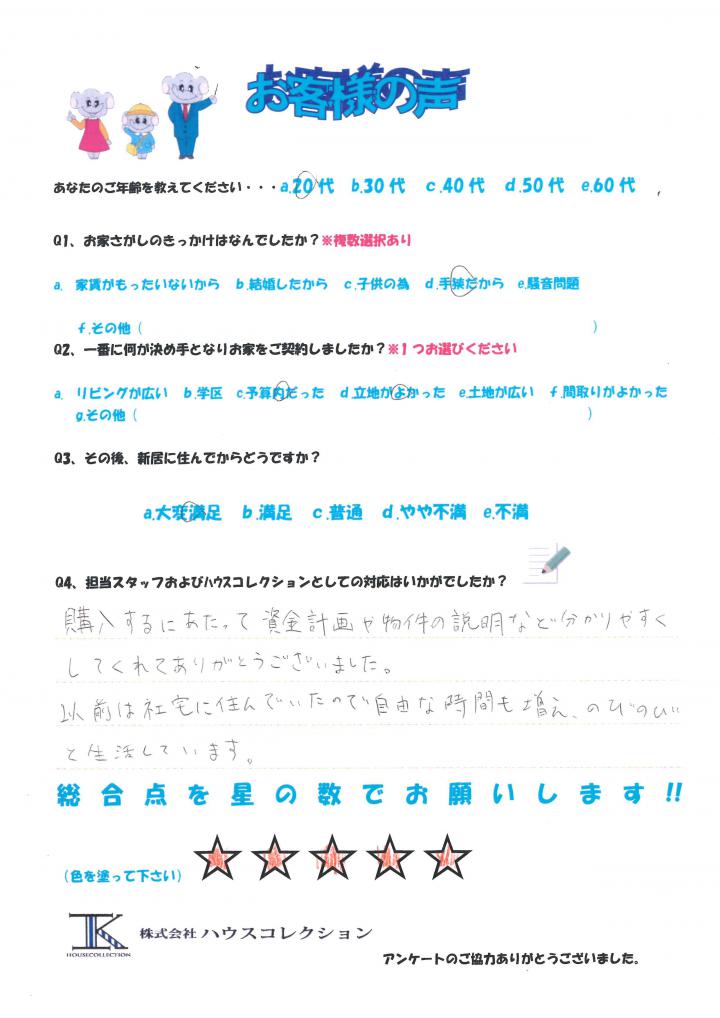 お客様の声
あなたのご年齢を教えてください・・・a.20代 b.30代 c.40代 d.50代 e.60代
Q1、お家さがしのきっかけはなんでしたか？※複数選択あり
a. 家賃がもったいないから b.結婚したから c.子供の為 d.手狭だから e.騒音問題
f.その他（ ）
Q2、一番に何が決め手となりお家をご契約しましたか？※１つお選びください
a. リビングが広い b.学区 c.予算内だった d.立地がよかった e.土地が広い f.間取りがよかった
g.その他（ ）
Q3、その後、新居に住んでからどうですか？
a.大変満足 b.満足 c.普通 d.やや不満 e.不満
Q4、担当スタッフおよびﾊｳｽコレクションとしての対応はいかがでしたか？
購入するにあたって資金計画や物件の説明など分かりやすく
してくれてありがとうございました。
以前は社宅に住んでいたので自由な時間も増え、のびのび
と生活しています。
総合点を星の数でお願いします!!
（色を塗って下さい）
HOUSECOLLECTION 株式会社 ハウスコレクション
アンケートのご協力ありがとうございました。